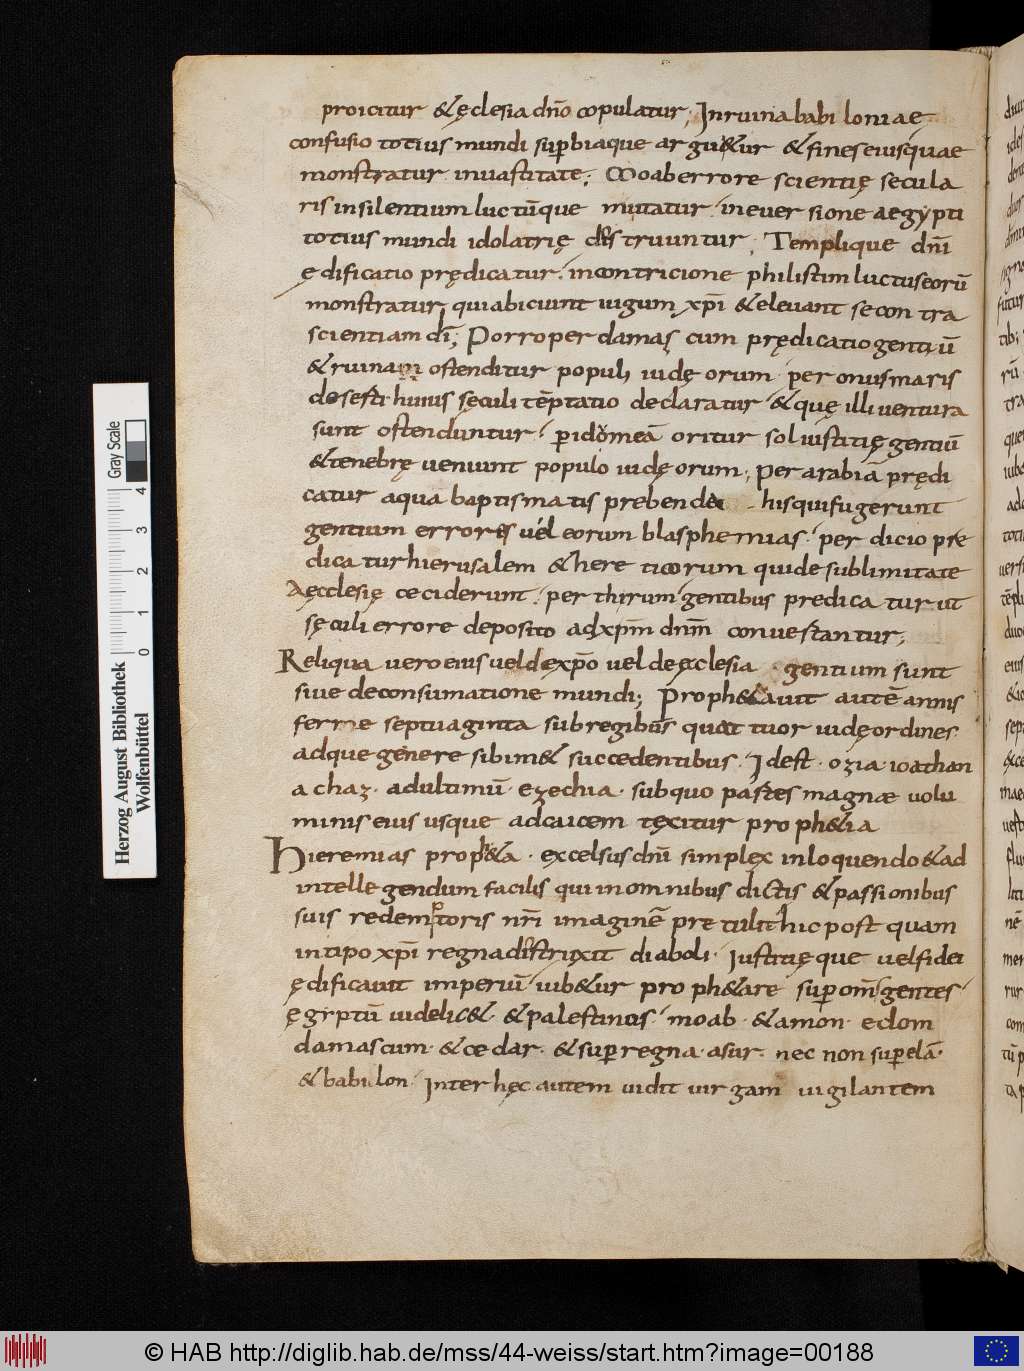 proicitur & ęclesia dño copulatur; In ruina babiloniae
confusio totius mundi superbiaque argu&ur & fines eius quae
monstratur in uastitate; Moab errore scientię secula
ris in silentium luctūque mutatur. in euersione aegypti
totius mundi idolatrię destruuntur; Templique dni
ędificatio prędicatur. in contricione philistim luctus eorū
monstratur qui abiciunt iugum xpi & eleuant se contra
scientiam di; Porro per damas cum prędicatio gentiū
& ruinam ostenditur populi iudęorum. per onus maris
deserti huius sęculi tēptatio declaratur & quę illi uentura
sunt ostenduntur. per idomeā oritur sol iustitię gentiū
& tenebrę ueniunt populo iudęorum; per arabiā prędi
catur aqua baptismatis prebenda his qui fugerunt
gentium erroris uel eorum blasphemias. per dicio pre
dicatur hierusalem & hereticorum qui de sublimitate
Aęcclesię ceciderunt. per thirum gentibus predicatur ut
sęculi errore deposito ad xpm dnm conuertantur,
Reliqua uero eius uel de xpo uel de ęcclesia gentium sunt
siue de consumatione mundi; Proph&auit autē annis
ferme septuaginta sub regibus quattuor iudę ordines
adque genere sibim& succedentibus. Idest. ozia. ioathan
achaz. ad ultimū. ezechia. sub quo partes magnae uolu
minis eius usque ad caicem texitur proph&ia
Hieremias proph&a. excelsus dni simplex in loquendo & ad
intellegendum facilis qui in omnibus dictis & passionibus
suis redemptoris nri imaginē pretulit hic postquam
in tipo xpi regna distruxit diaboli. Iustitięque uel fidei
ędificauit imperiū iub&ur proph&are super oms gentes
ęgyptū uidelic& & palestinos. moab. & amon. edom
damascum. & cedar. & super regna. asur. nec non super elā.
& babilon. Inter hęc autem uidit uirgam uigilantem
Herzog August Bibliothek
Wolfenbüttel
0 1 2 3 4
Gray Scale
© HAB http://diglib.hab.de/mss/44-weiss/start.htm?image=00188